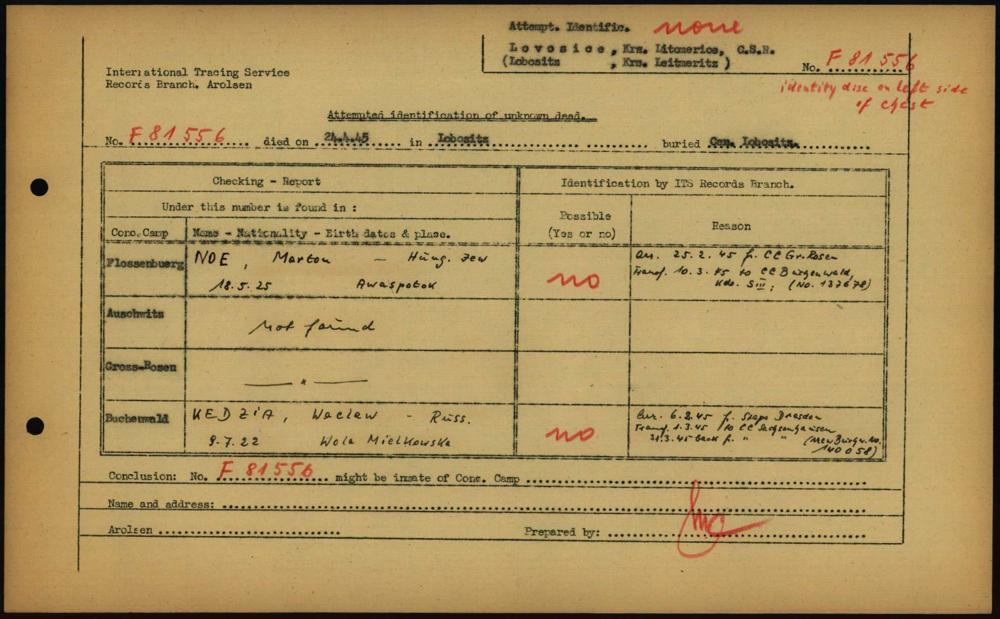 Attempt. Identific. none
Lovosice, Krs. Litomerice, C.S.R.
(Lobositz , Krs. Leitmeritz )
No. F 81 556
identity disc on left side
of chest
International Tracing Service
Records Branch. Arolsen
Attempted identification of unknown dead.
No. F 81 556 died on 24.4.45 in Lobositz buried Cem. Lobositz.
Checking - Report
Identification by ITS Records Branch.
Under this number is found in :
Possible
(Yes or no)
Reason
Conc.Camp
Name - Nationality - Birth dates & place.
Flossenbuerg
NOE, Marton - Hung. Jew
18.5.25 Awaspotok
no
arr. 25.2.45 fr. CC Gr. Rosen
Transf. 10.3.45 to CC Buchenwald,
Kdo. SIII; (No. 137678)
Auschwitz
not found
Gross-Rosen
— " —
Buchenwald
KEDZIA, Waclaw - Russ.
9.7.22 Wola Mielkowska
no
arr. 6.2.45 fr. Stapo Dresden
Transf. 1.3.45 to CC Sachsenhausen
31.3.45 back fr. " " (new Buchw. No.
140058)
Conclusion: No. F 81556 might be inmate of Conc. Camp
Name and address:
Arolsen
Prepared by: